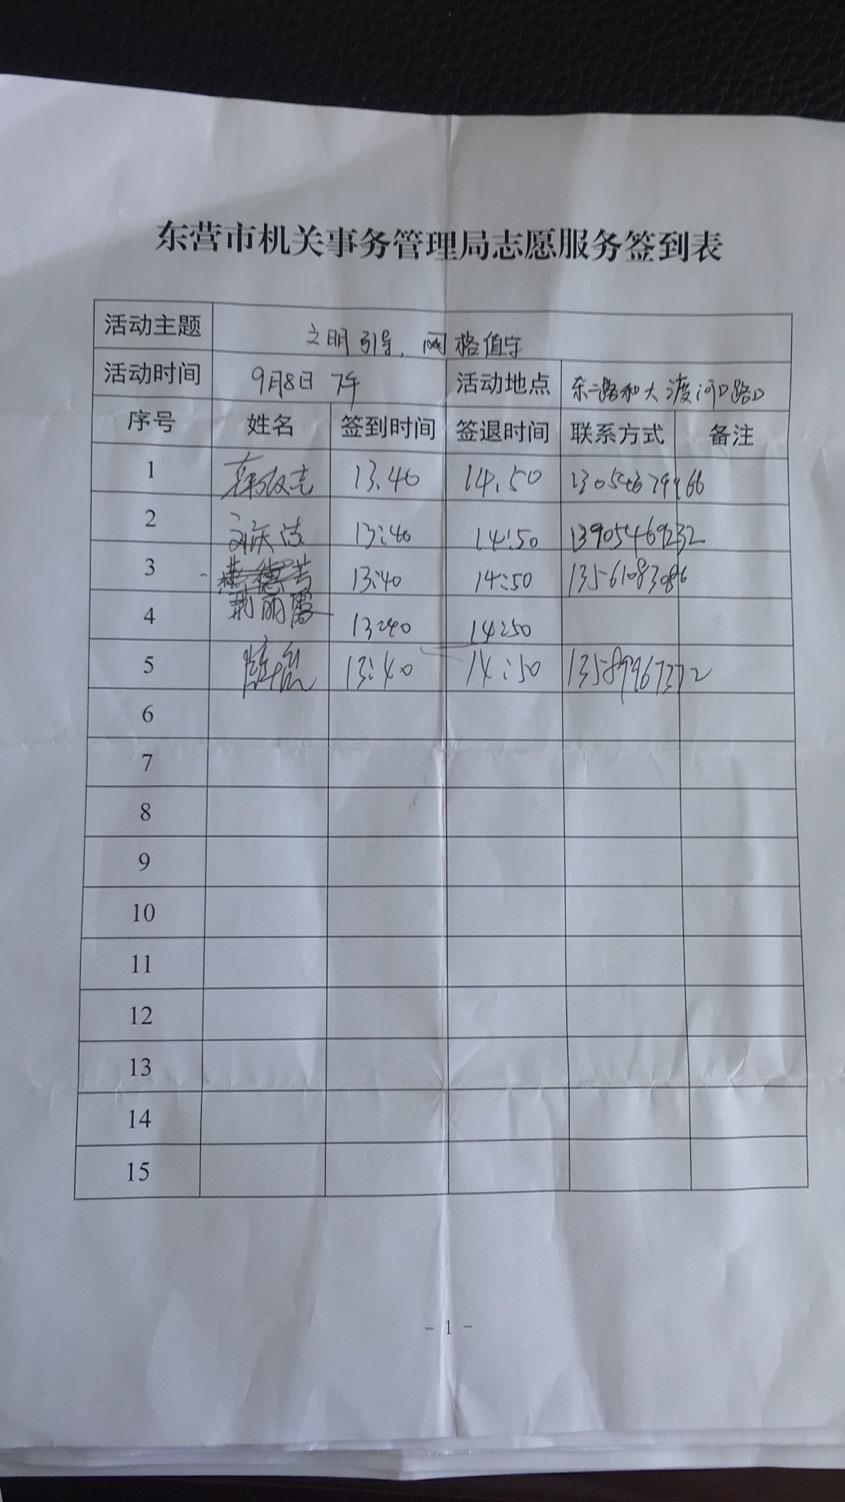 东营市机关事务管理局志愿服务签到表
活动主题 文明引导，网格值守
活动时间 9月8日 下午 活动地点 东二路和大渡河路口
序号 姓名 签到时间 签退时间 联系方式 备注
1 13.40 14.50
2 13:40 14:50 13905469232
3 13:40 14:50 13561083086
4 13:40 14:50
5 13:40 14:50 13589967372
6
7
8
9
10
11
12
13
14
15
- 1 -